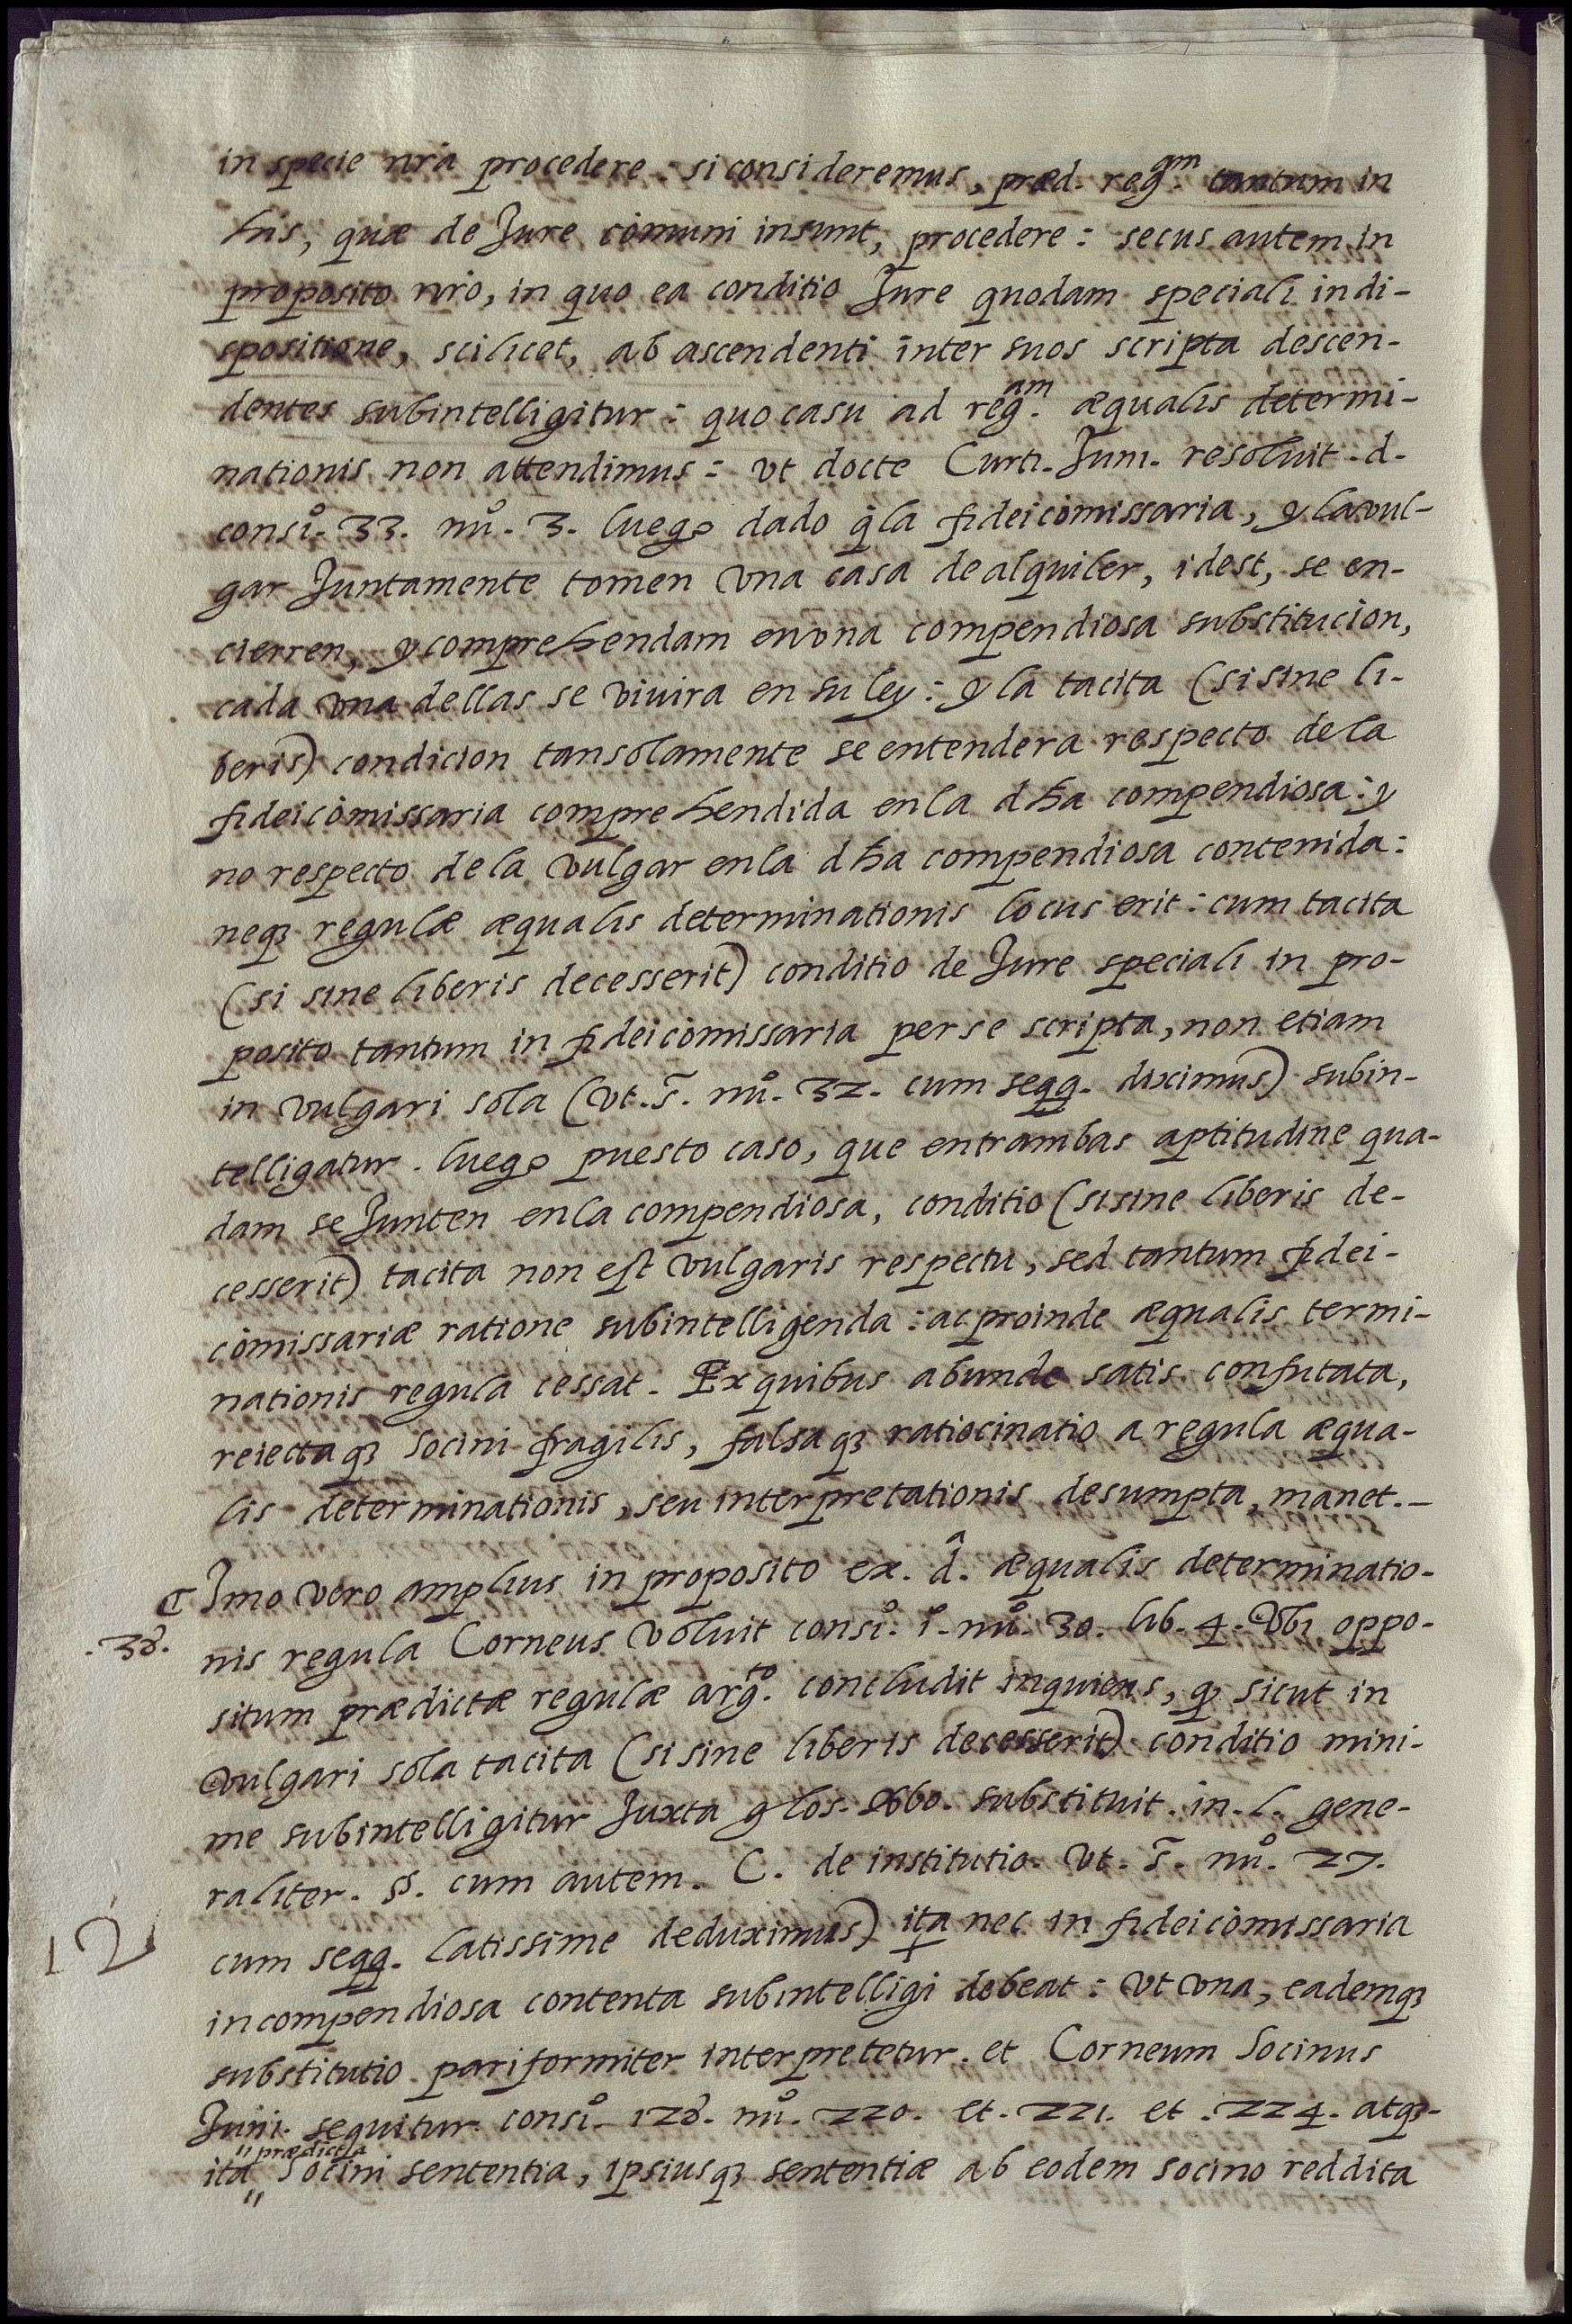 in specie nr̃a procedere: si consideremus, præd. reg.^am tantum in
his, quæ de Jure cōmuni insunt, procedere: secus autem in
proposito nr̃o, in quo ea conditio Jure quodam speciali in di-
spositione, scilicet, ab ascendenti inter suos scripta descen-
dentes subintelligitur: quo casu ad reg.^am æqualis determi-
nationis non attendimus: vt docte Curti. Juni. resoluit. d.
consi.º 33. nu.º 3. luego dado q̃ la fideicōmissaria, y la vul-
gar Juntamente tomen vna casa de alquiler, idest, se en-
cierren, y comprehendam en vna compendiosa substitucion,
cada vna dellas se viuira en su ley: y la tacita (si sine li-
beris) condicion tansolamente se entendera respecto de la
fideicōmissaria comprehendida en la dh̃a compendiosa: y
no respecto de la vulgar en la dh̃a compendiosa contenida:
neq3 regulæ æqualis determinationis locus erit: cum tacita
(si sine liberis decesserit) conditio de Jure speciali in pro-
posito tantum in fideicōmissaria per se scripta, non etiam
in vulgari sola (vt. s̃. nu.º 32. cum seqq. diximus) subin-
telligatur. luego puesto caso, que entrambas aptitudine qua-
dam se Junten en la compendiosa, conditio (si sine liberis de-
cesserit) tacita non est vulgaris respectu, sed tantum fidei-
cōmissariæ ratione subintelligenda: ac proinde æqualis termi-
nationis regula cessat. Ex quibus abunde satis confutata,
reiectaq3 Socini fragilis, falsaq3 ratiocinatio a regula æqua-
lis determinationis, seu interpretationis desumpta, manet.
¶ Imo vero amplius in proposito ex. d̂. æqualis determinatio-
.38. nis regula Corneus voluit consi.º 1.º nu.º 30. lib. 4. Vbi oppo-
situm prædictæ regulæ arg.^to concludit inquiens, q sicut in
vulgari sola tacita (si sine liberis decesserit) conditio mini-
me subintelligitur Juxta glos. Vbo. substituit. in. l. gene-
raliter. §. cum autem. C. de institutio. vt. s̃. nu.º 27.
cum seqq. latissime deduximus) ita nec in fideicōmissaria
12
in compendiosa contenta subintelligi debeat: vt vna, eademq3
substitutio pariformiter interpretetur. et Corneum Socinus
Juni. sequitur consi.º 128. nu.º 220. et. 221. et. 224. atq3
prædicta
ita Socini sententia, ipsiusq3 sententiæ ab eodem socino reddita